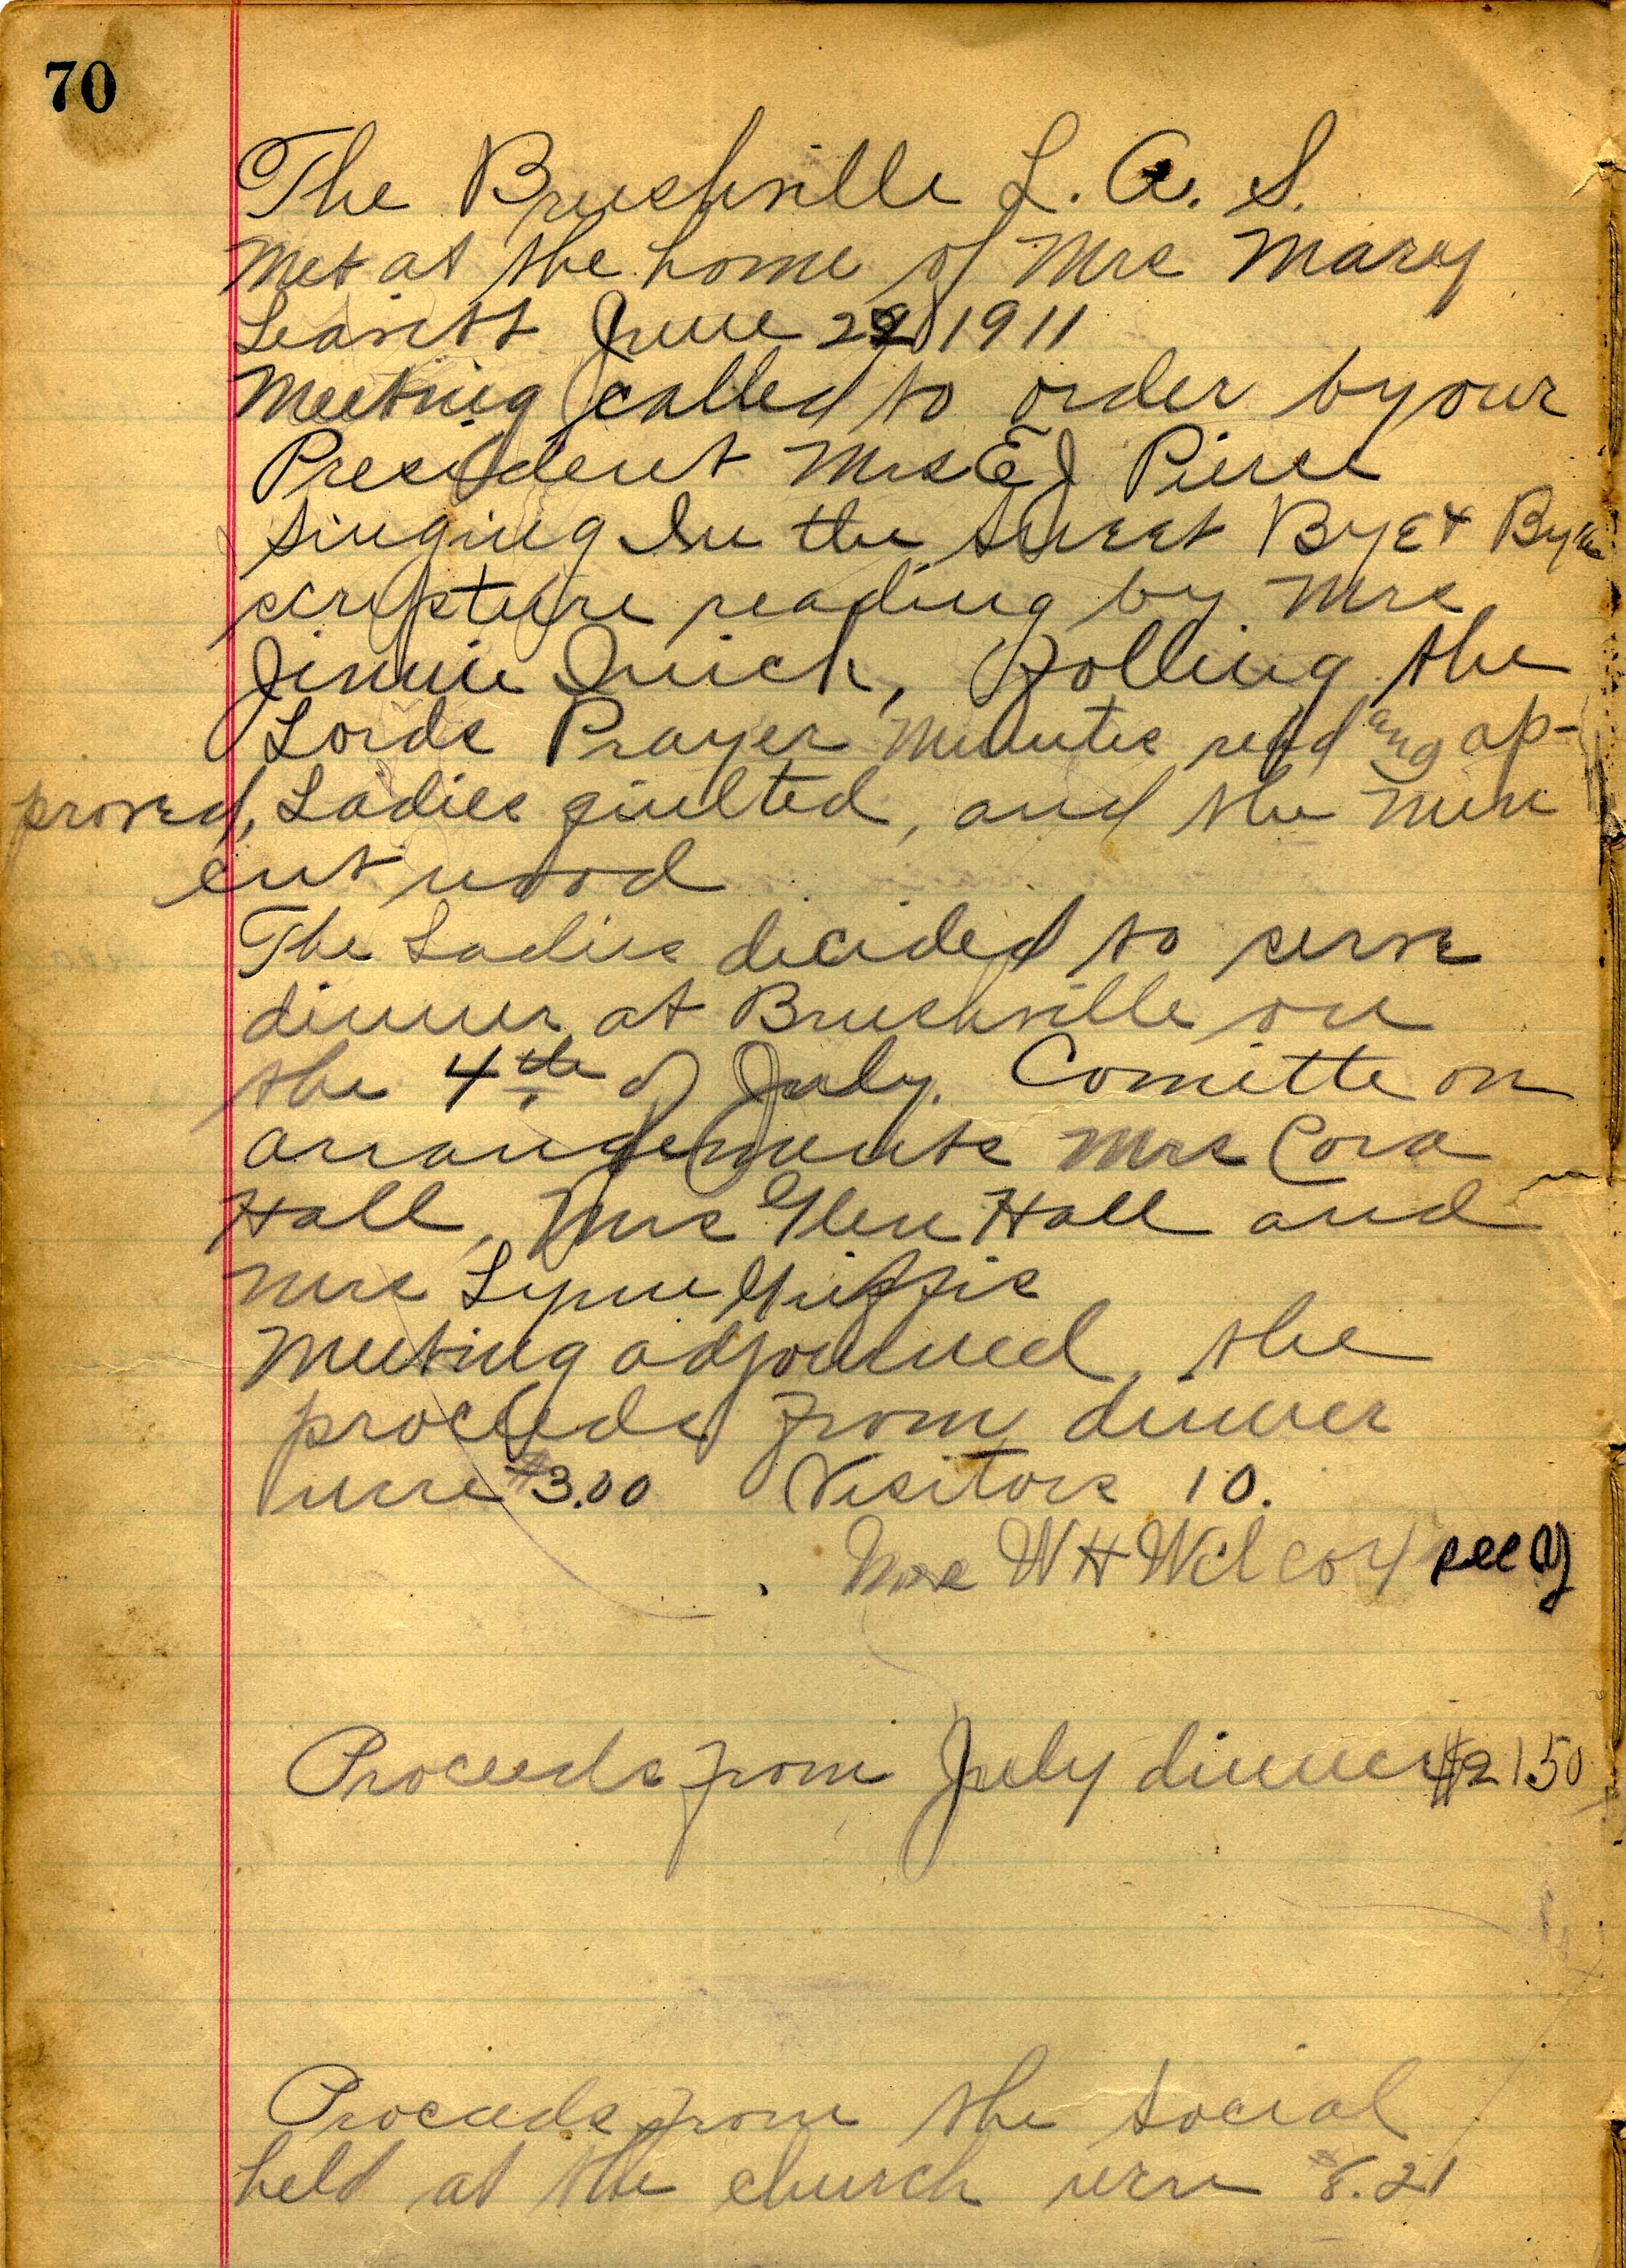 70
The Brushville L. A. S.
Met at the home of Mrs Mary
Leavitt June 1911
Meeting called to order by our
President Mrs E J Pierce
Singing In the Sweet Bye & Bye
scripture reading by Mrs
Jinnie Quick, Folling the
Lords Prayer Minutes read and ap-
proved, Ladies quilted, and the men
cut wood
The Ladies decided to serve
dinner at Brushville on
the 4th of July. Comitte on
arrangements Mrs Cora
Hall, Mrs Glen Hall and
Mrs Lynn Griffis
Meeting adjourned, the
proceeds from dinner
were $3.00 Visitors 10.
Mrs W H Wilcox secy
Proceeds from July dinner $21 50
Proceeds from the social
held at the church were $8.21